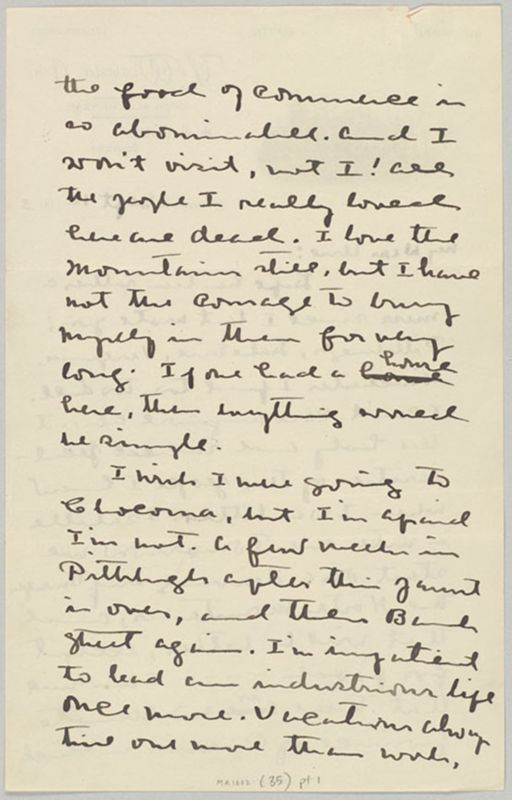 the food of commerce is
so abominable. And I
won't visit, not I! All
the people I really loved
here are dead. I love the
mountains still, but I have
not the courage to bury
myself in them for very
long. If one had a home house
here, then anything would
be simple.
I wish I were going to
Chocorua, but I'm afraid
I'm not. A few weeks in
Pittsburgh after this jaunt
is over, and then Bank
Street again. I'm impatient
to lead an industrious life
once more. Vacations always
tire one more than work,
MA 1602 (35) pt 1